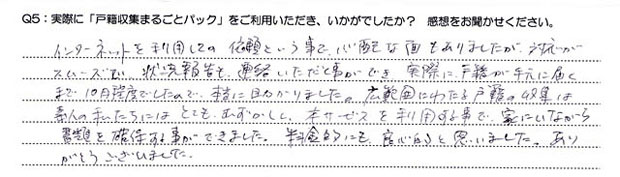 Q5：実際に「戸籍収集まるごとパック」をご利用いただき、いかがでしたか？　感想をお聞かせください。
インターネットを利用しての依頼という事で、心配な面もありましたが、対応が
スムーズで、状況報告も、連絡いただく事ができ、実際に、戸籍が手元に届く
まで10日程度でしたので、本当に助かりました。広範囲にわたる戸籍の収集は
素人の私たちにはとてもむずかしく、本サービスを利用する事で、家にいながら
書類を確保する事ができました。料金的にも、良心的と思いました。あり
がとうございました。